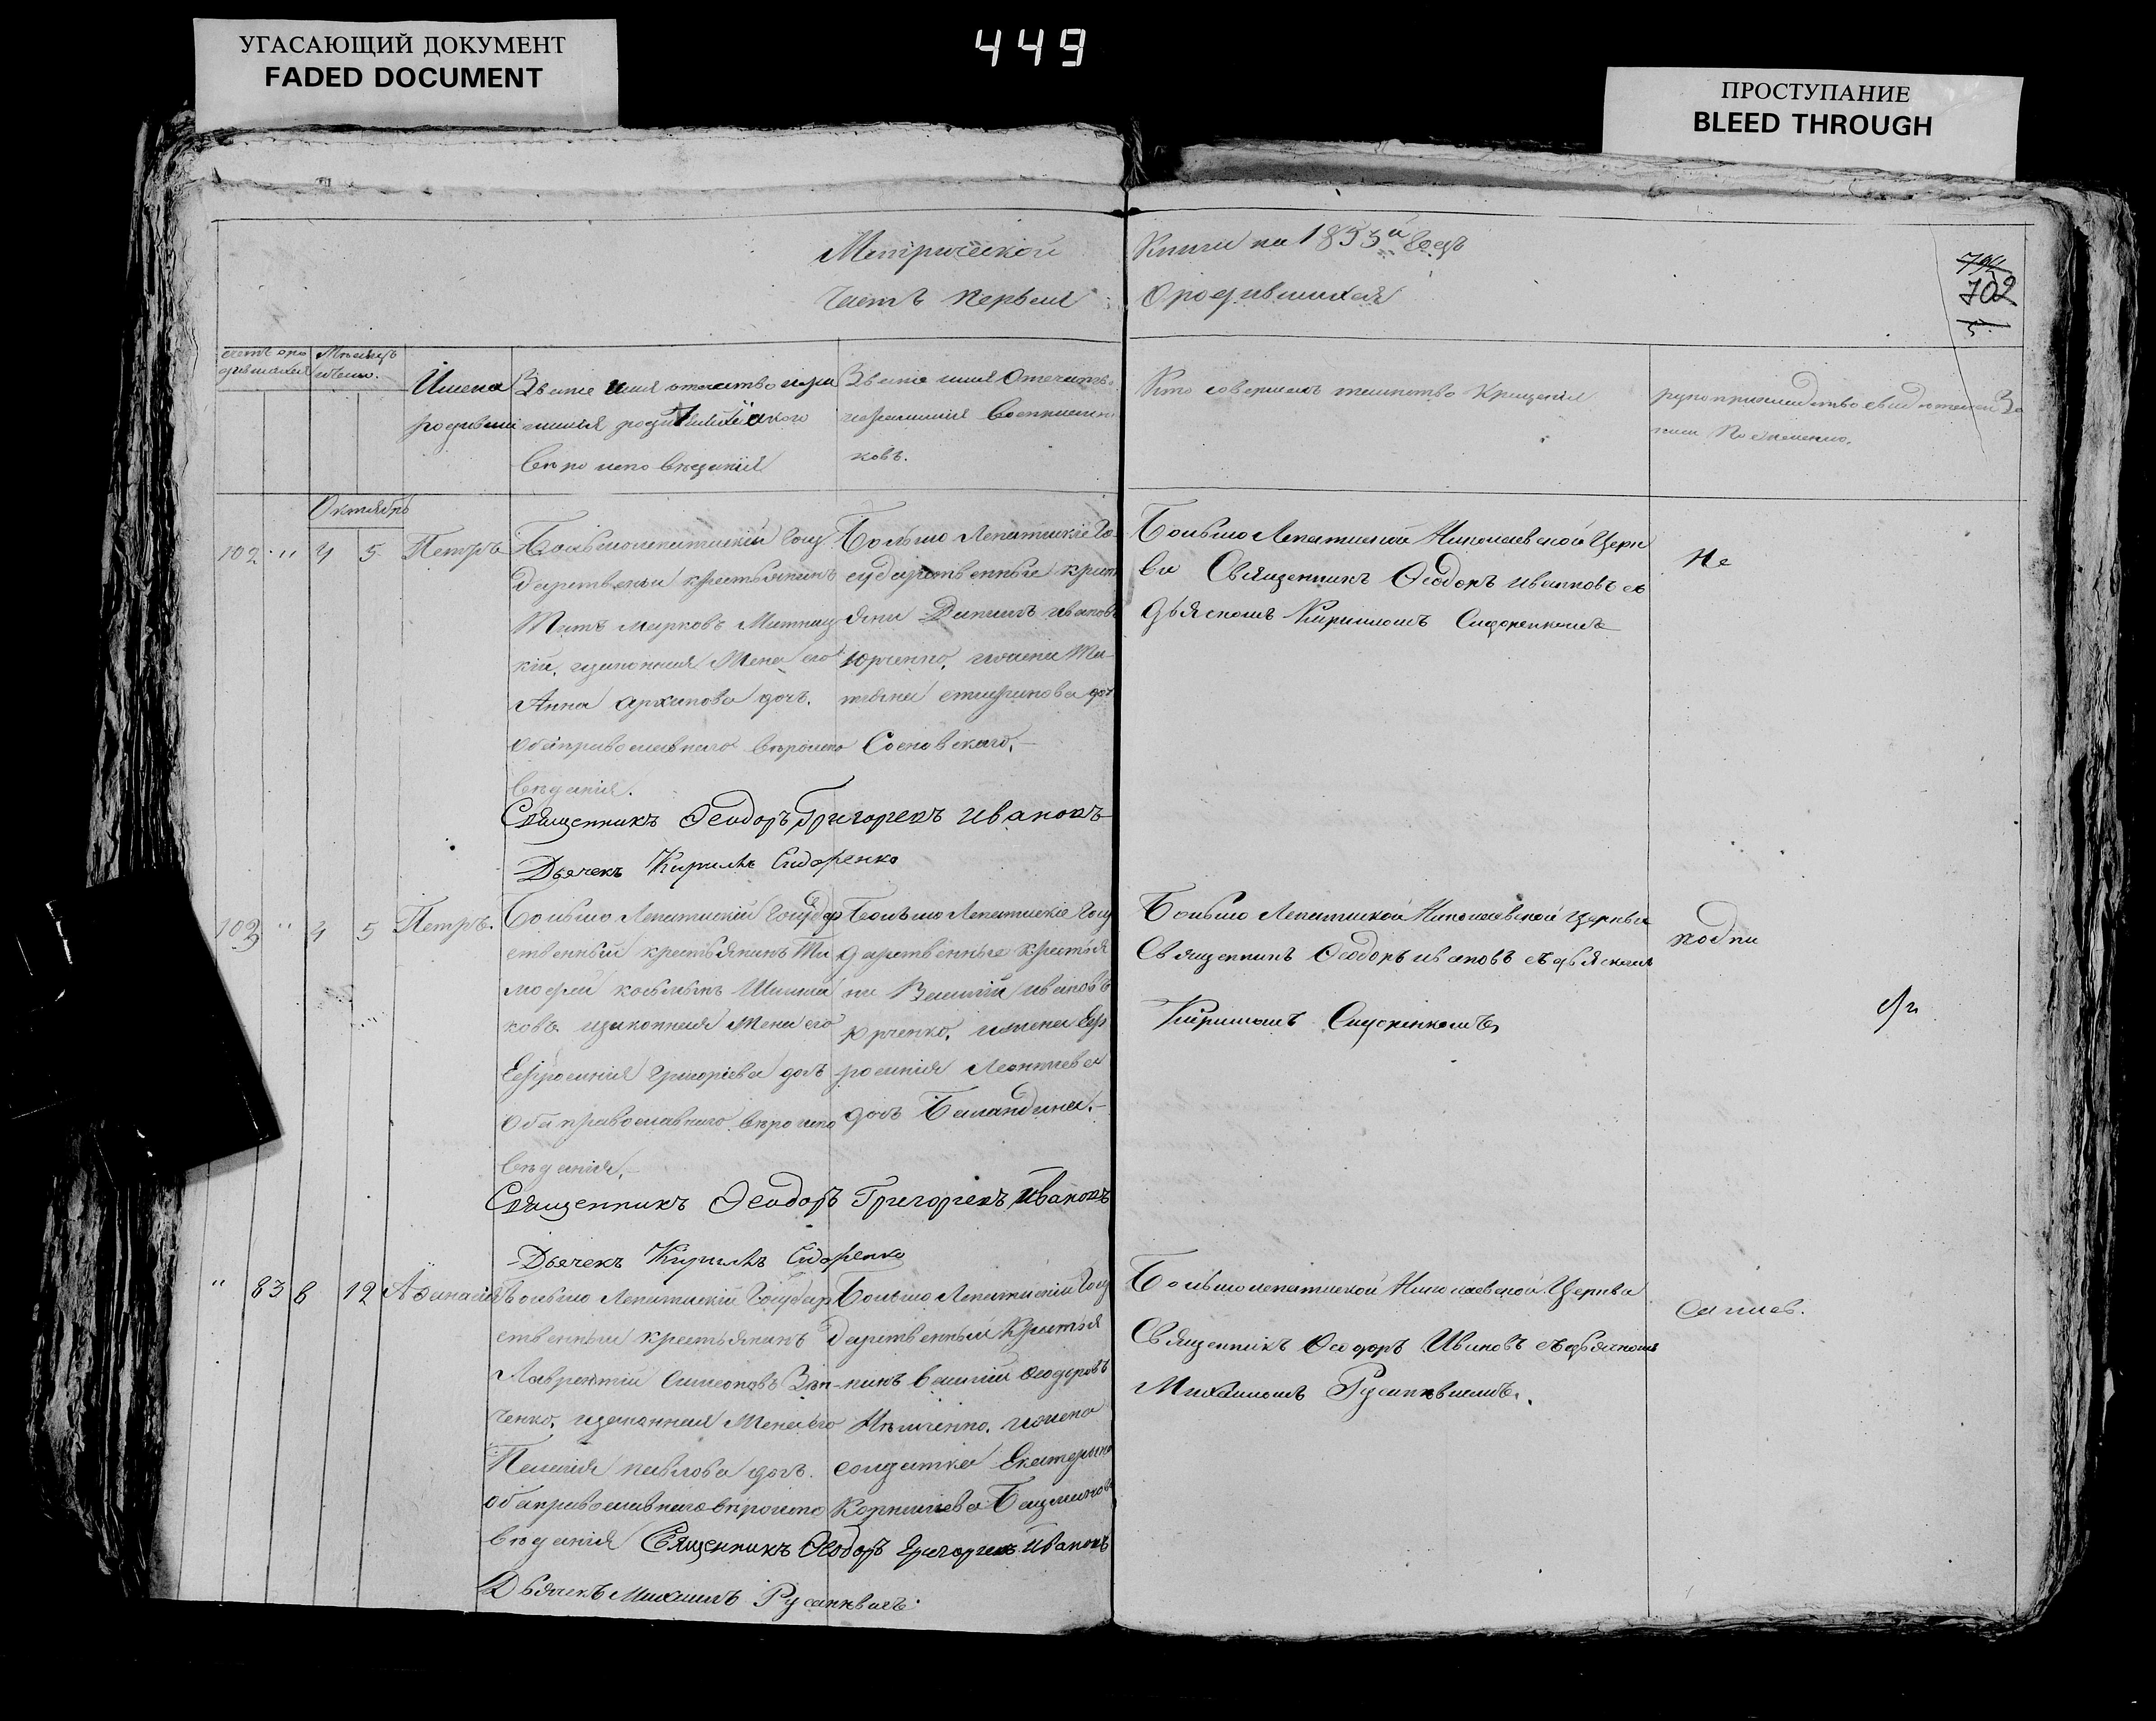 УГАСАЮЩИЙ ДОКУМЕНТ
FADED DOCUMENT
449
ПРОСТУПАНИЕ
BLEED THROUGH
Метрической Книги на 1853й Годъ
Часть Первая О родившихся
702
Имена
родивши
Званіе имя отчество и фа
милія родителей и какого
вѣроисповѣданія
Званіе имя Отечество
и фамилія Воспріемни
ковъ.
Кто совершалъ таинство Крещенія
рукоприкладство свидѣтелей За
писи По желанію.
Октябрь
102 " 4 5 Петръ
Большолепатискій Госу
дарственный крестьянинъ
Титъ Марковъ Митниц
кій, и законная Жена его
Анна Архипова дочь.
Оба православнаго вѣроиспо
вѣданія.
Большо Лепатискіе Го
сударственные крестья
яни Данилъ Ивановъ
Юрченко, и жена Та
тіяна дочь
Сосновскаго.
Большо Лепатиской Николаевской Церк
ви Священникъ Ѳеодоръ Ивановъ съ
дьячкомъ Кирилломъ Сидоренкомъ
Не
Священникъ Ѳеодоръ Григорьевъ Ивановъ
Дьячекъ Кирилъ Сидоренко
103 " 4 5 Петръ.
Большо Лепатискій Государ
ственный крестьянинъ Ти
мофей
ковъ и законная Жена его
Ефросинія Григоріева дочь
Оба православнаго вѣроиспо
вѣданія.
Большо Лепатискіе Госу
дарственные Крестья
не Василій Ивановъ
Юрченко, и жена Еф
росинія Леонтіева
дочь Баландина.
Большо Лепатиской Николаевской Церкви
Священникъ Ѳеодоръ Ивановъ съ дьячкомъ
Кирилломъ Сидоренкомъ
подпи
Священникъ Ѳеодоръ Григорьевъ Ивановъ
Дьячекъ Кирилъ Сидоренко
" 83 8 12 Аѳанасія
Большо Лепатискій Государ
ственный крестьянинъ
Лаврентій Симеоновъ Зин
ченко, и законная Жена его
Пелагія Павлова дочь.
Оба православнаго вѣроиспо
вѣданія
Большо Лепатискій Госу
дарственный Крестья
нинъ Василій Ѳеодоровъ
и жена
солдатка Екатерина
Корнилиева
Большолепатиской Николаевской Церкви
Священникъ Ѳеодоръ Ивановъ съ дьячкомъ
Михаиломъ
Священникъ Ѳеодоръ Григорьевъ Ивановъ
Дьячекъ Михаилъ